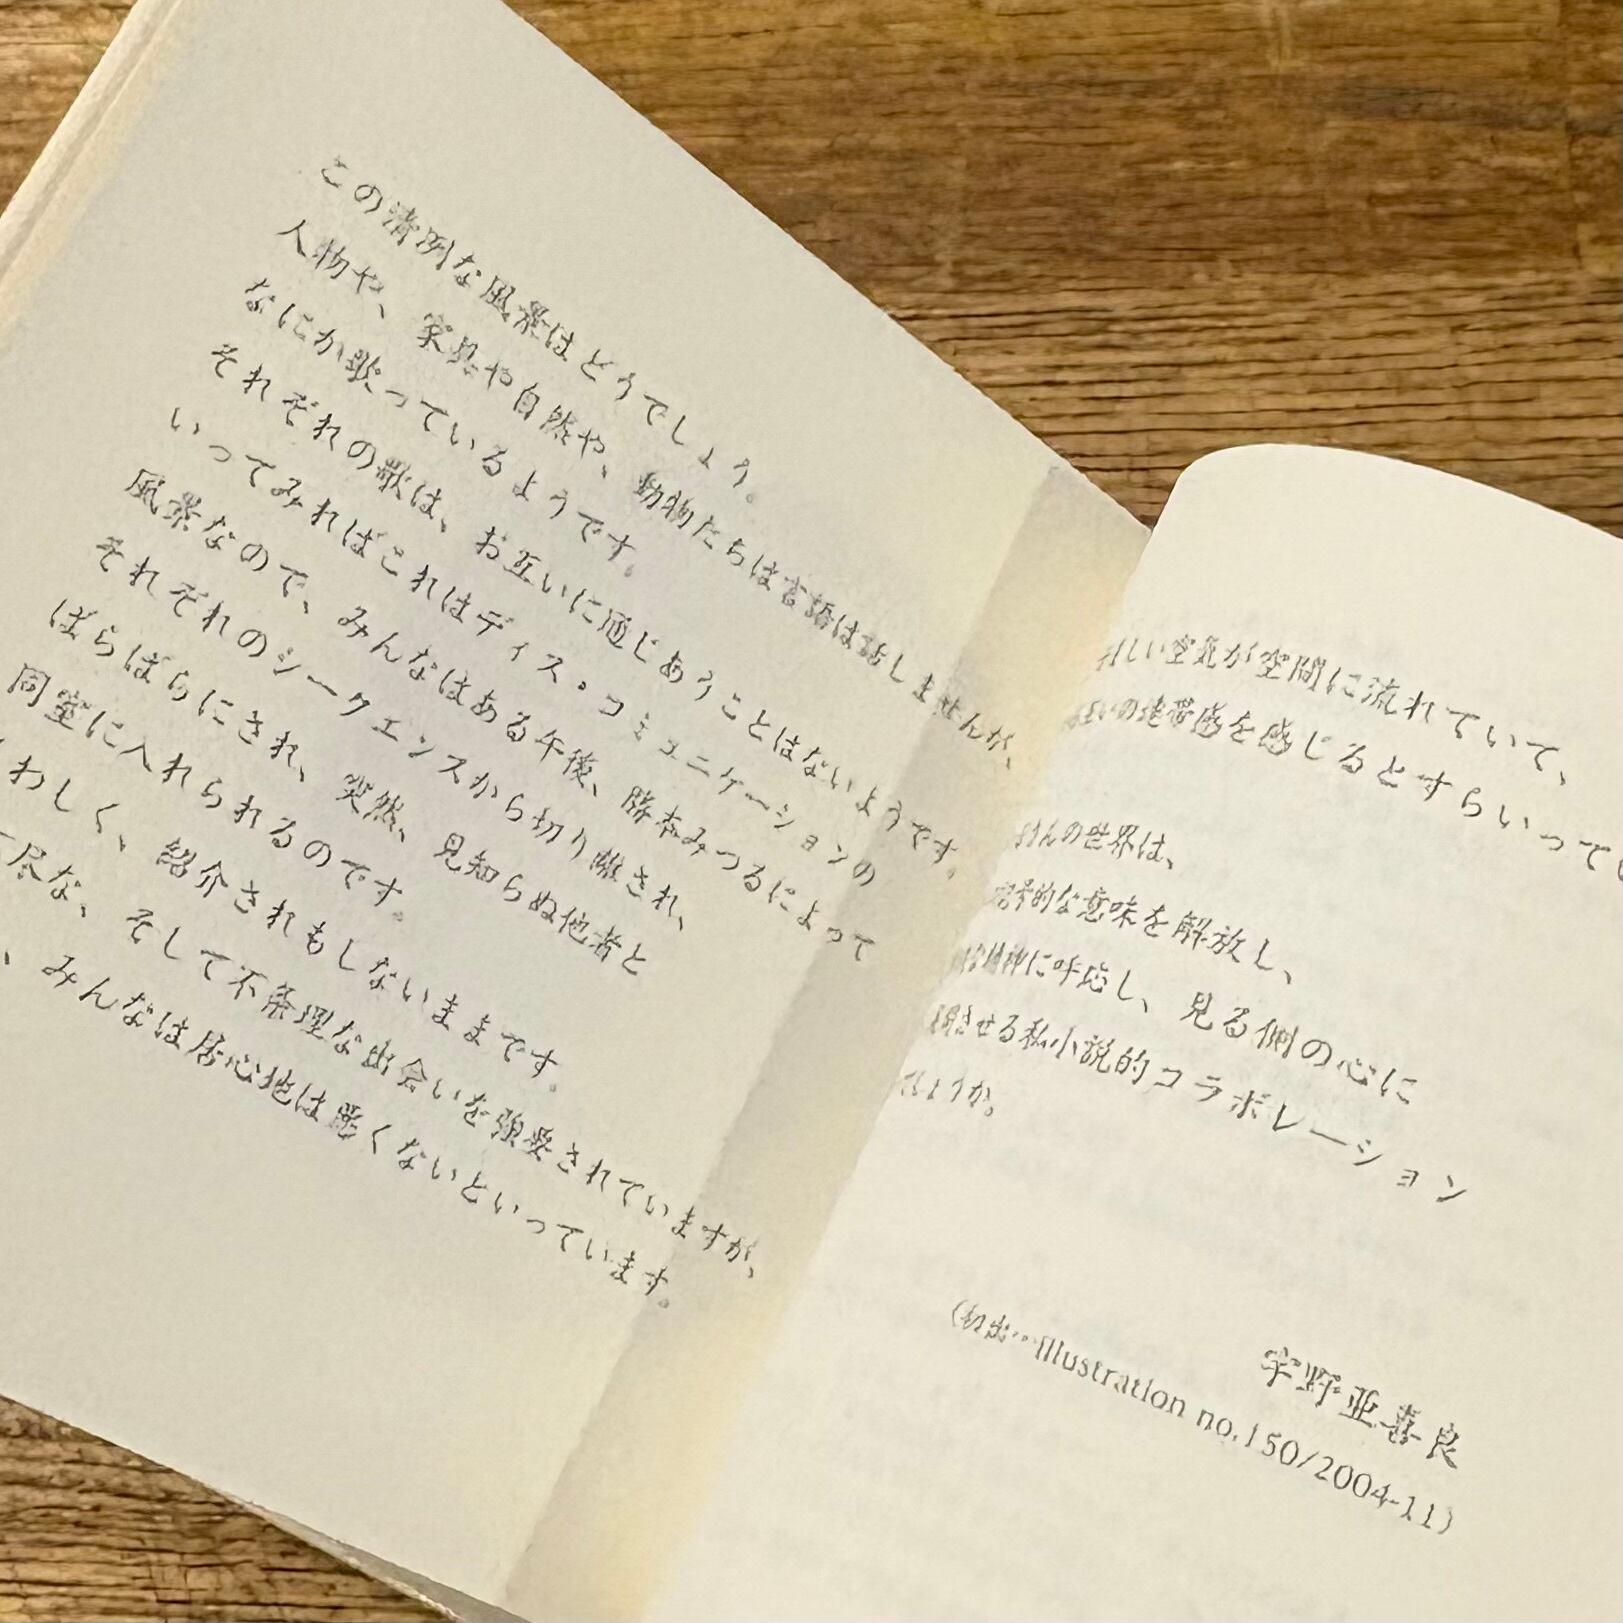 この清冽な風景はどうでしょう。
人物や、家具や自然や、動物たちは言語は話しませんが、
なにか歌っているようです。
それぞれの歌は、お互いに通じあうことはないようです。
いってみればこれはディス・コミュニケーションの
風景なので、みんなはある午後、勝本みつるによって
それぞれのシークエンスから切り離され、
ばらばらにされ、突然、見知らぬ他者と
同室に入れられるのです。
わしく、紹介されもしないままです。
尽な、そして不条理な出会いを強要されていますが、
、みんなは居心地は悪くないといっています。
しい空気が空間に流れていて、
互いの連帯感を感じるとすらいって
さんの世界は、
記号的な意味を解放し、
精神に呼応し、見る側の心に
させる私小説的コラボレーション
でしょうか。
宇野亜喜良
(初出…illustration no.150/2004-11)